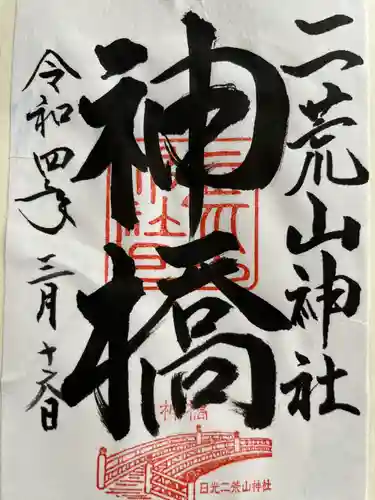 二荒山神社
神橋
令和四年
三月十六日
神橋
日光二荒山神社